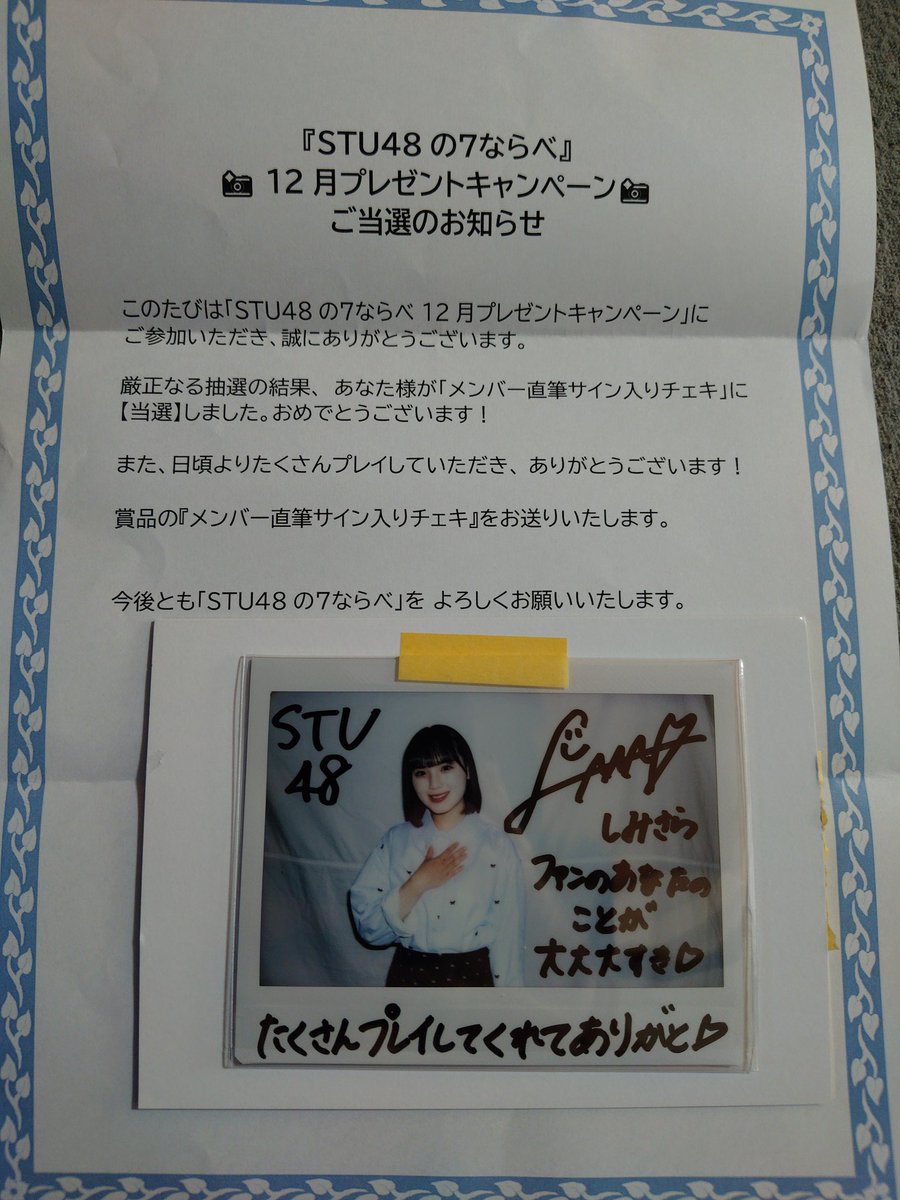 『STU48 の7ならべ』
12 月プレゼントキャンペーン
ご当選のお知らせ
このたびは「STU48 の7ならべ 12 月プレゼントキャンペーン」に
ご参加いただき、誠にありがとうございます。
厳正なる抽選の結果、 あなた様が「メンバー直筆サイン入りチェキ」に
【当選】しました。おめでとうございます！
また、日頃よりたくさんプレイしていただき、ありがとうございます！
賞品の『メンバー直筆サイン入りチェキ』をお送りいたします。
今後とも「STU48 の7ならべ」を よろしくお願いいたします。
STU
48
しみさら
ファンのあなたの
ことが
大大大すき♡
たくさんプレイしてくれてありがと♡